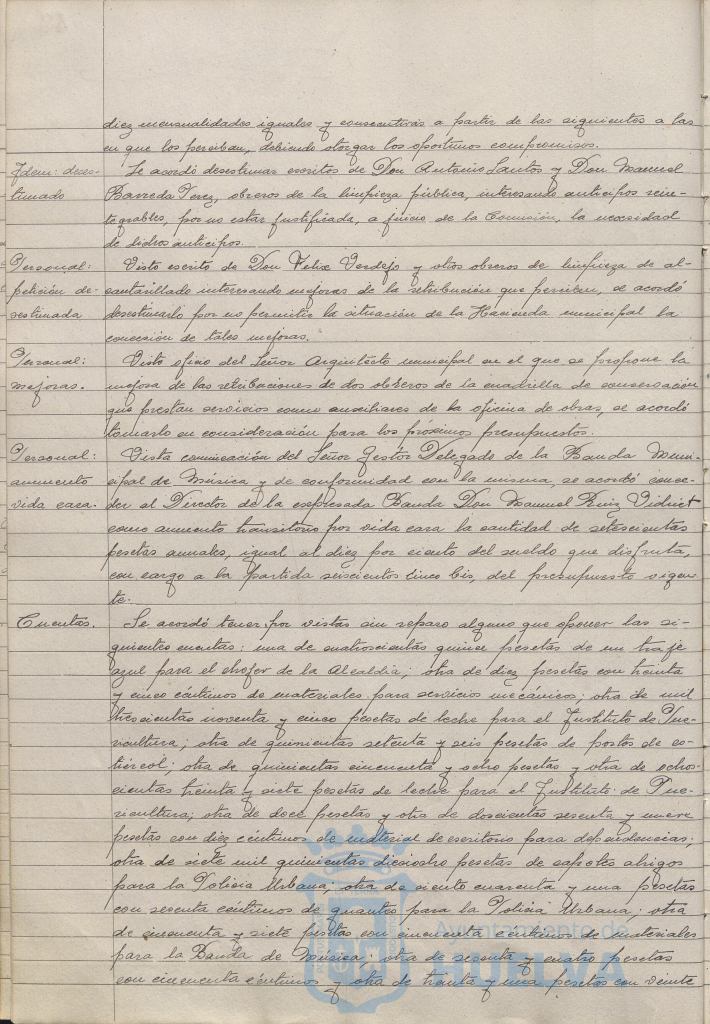 diez mensualidades iguales y consecutivas a partir de las siguientes a las
en que los perciban, debiendo otorgar los oportunos compromisos.
Idem: deses-
timado
Se acordó desestimar escritos de Don Antonio Santos y Don Manuel
Barreda Perez, obreros de la limpieza pública, interesando anticipos rein-
tegrables, por no estar justificada, a juicio de la Comisión, la necesidad
de dichos anticipos.
Personal:
petición de-
sestimada
Visto escrito de Don Felix Verdejo y otros obreros de limpieza de al-
cantarillado interesando mejoras de la retribución que perciben, se acordó
desestimarlo por no permitir la situación de la Hacienda municipal la
concesión de tales mejoras.
Personal:
mejoras.
Visto oficio del Señor Arquitecto municipal en el que se propone la
mejora de las retribuciones de dos obreros de la cuadrilla de conservación
que prestan servicios como auxiliares de la oficina de obras, se acordó
tomarlo en consideración para los próximos presupuestos.
Personal:
aumento
vida cara.
Vista comunicación del Señor Gestor Delegado de la Banda Muni-
cipal de Música y de conformidad con la misma, se acordó conce-
der al Director de la expresada Banda Don Manuel Ruiz Vidriet
como aumento transitorio por vida cara la cantidad de setescientas
pesetas anuales, igual al diez por ciento del sueldo que disfruta,
con cargo a la partida seiscientos cinco bis, del presupuesto vigen-
te.
Cuentas.
Se acordó tener por vistas sin reparo alguno que oponer las si-
guientes cuentas: una de cuatroscientas quince pesetas de un traje
azul para el chofer de la Alcaldía; otra de diez pesetas con treinta
y cinco céntimos de materiales para servicios mecánicos; otra de mil
trescientas noventa y cinco pesetas de leche para el Instituto de Pue-
ricultura; otra de quinientas setenta y seis pesetas de portes de es-
tiercol; otra de quinientas cincuenta y ocho pesetas y otra de ochos-
cientas treinta y siete pesetas de leche para el Instituto de Pue-
ricultura; otra de doce pesetas y otra de doscientas sesenta y nueve
pesetas con diez céntimos de material de escritorio para dependencias;
otra de siete mil quinientas dieciocho pesetas de capotes abrigos
para la Policia Urbana; otra de ciento cuarenta y una pesetas
con sesenta centimos de guantes para la Policia Urbana; otra
de cincuenta y siete pesetas con cincuenta centimos de materiales
para la Banda de Música; otra de sesenta y cuatro pesetas
con cincuenta céntimos y otra de treinta y una pesetas con veinte
Ayuntamiento de
HUELVA